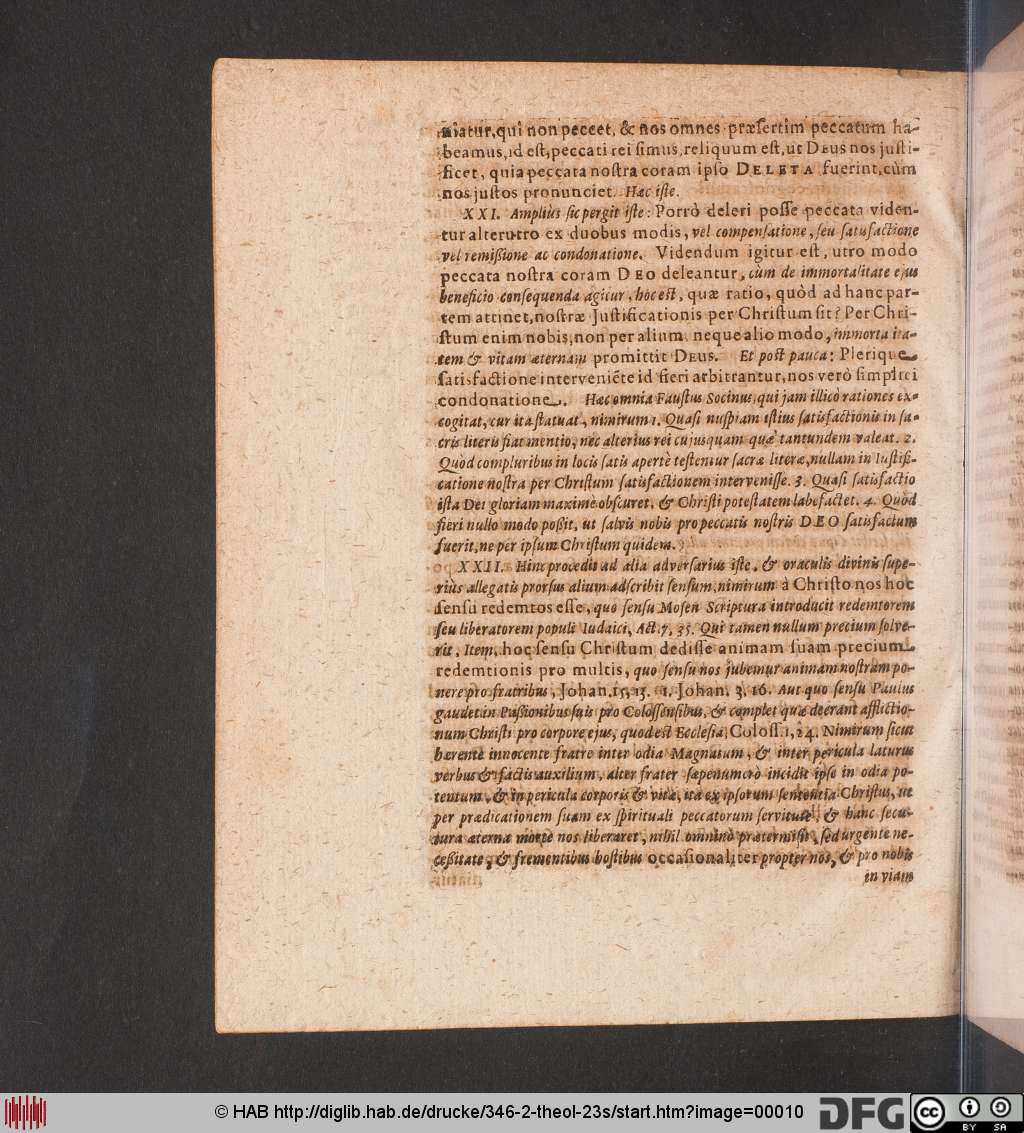 niatur, qui non peccet, & nos omnes præsertim peccatum ha-
beamus, id est, peccati rei simus, reliquum est, ut DEUS nos justi-
ficet, quia peccata nostra coram ipso DELETA fuerint, cùm
nos justos pronunciet. Hæc iste.
XXI. Ampliùs sic pergit iste: Porrò deleri posse peccata viden-
tur alterutro ex duobus modis, vel compensatione, seu satisfactione
vel remißione ac condonatione. Videndum igitur est, utro modo
peccata nostra coram DEO deleantur, cùm de immortalitate ejus
beneficio consequenda agitur, hoc est, quæ ratio, quòd ad hanc par-
tem attinet, nostræ Justificationis per Christum sit? Per Chri-
stum enim nobis, non per alium, neque alio modo, immortalita-
tem & vitam æternam promittit DEUS. Et post pauca: Plerique
satisfactione interveniẽte id fieri arbitrantur, nos verò simplici
condonatione. Hæc omnia Faustus Socinus, qui jam illicò rationes ex-
cogitat, cur ita statuat, nimirum 1. Quasi nuspiam istius satisfactionis in sa-
cris literis fiat mentio, nec alterius rei cujusquam quæ tantundem valeat. 2.
Quòd compluribus in locis satis apertè testentur sacræ literæ, nullam in Iustifi-
catione nostra per Christum satisfactionem intervenisse. 3. Quasi satisfactio
ista Dei gloriam maximè obscuret, & Christi potestatem labefactet. 4. Quòd
fieri nullo modo poßit, ut salvis nobis pro peccatis nostris DEO satisfactum
fuerit, ne per ipsum Christum quidem.
XXII. Hinc procedit ad alia adversarius iste, & oraculis divinis supe-
riùs allegatis prorsus alium adscribit sensum, nimirum à Christo nos hoc
sensu redemtos esse, quo sensu Mosen Scriptura introducit redemtorem
seu liberatorem populi Iudaici, Act. 7, 35. Qui tamen nullum precium solve-
rit. Item, hoc sensu Christum dedisse animam suam precium
redemtionis pro multis, quo sensu nos jubemur animam nostram po-
nere pro fratribus, Johan. 15, 13. 1. Johan. 3, 16. Aut quo sensu Paulus
gaudet in Paßionibus suis pro Colossensibus, & complet quæ deerant afflictio-
num Christi pro corpore ejus, quod est Ecclesia, Coloss. 1, 24. Nimirum sicut
hærente innocente fratre inter odia Magnatum, & inter pericula laturus
verbis & factis auxilium, alter frater sæpenumerò incidit ipse in odia po-
tentum, & in pericula corporis & vitæ, ita ex ipsorum sententia Christus, ut
per prædicationem suam ex spirituali peccatorum servitute, & hanc secu-
tura æterna morte nos liberaret, nihil omninò prætermisit, sed urgente ne-
ceßitate, & frementibus hostibus occasionaliter propter nos, & pro nobis
in viam
© HAB http://diglib.hab.de/drucke/346-2-theol-23s/start.htm?image=00010
DFG
cc
BY SA